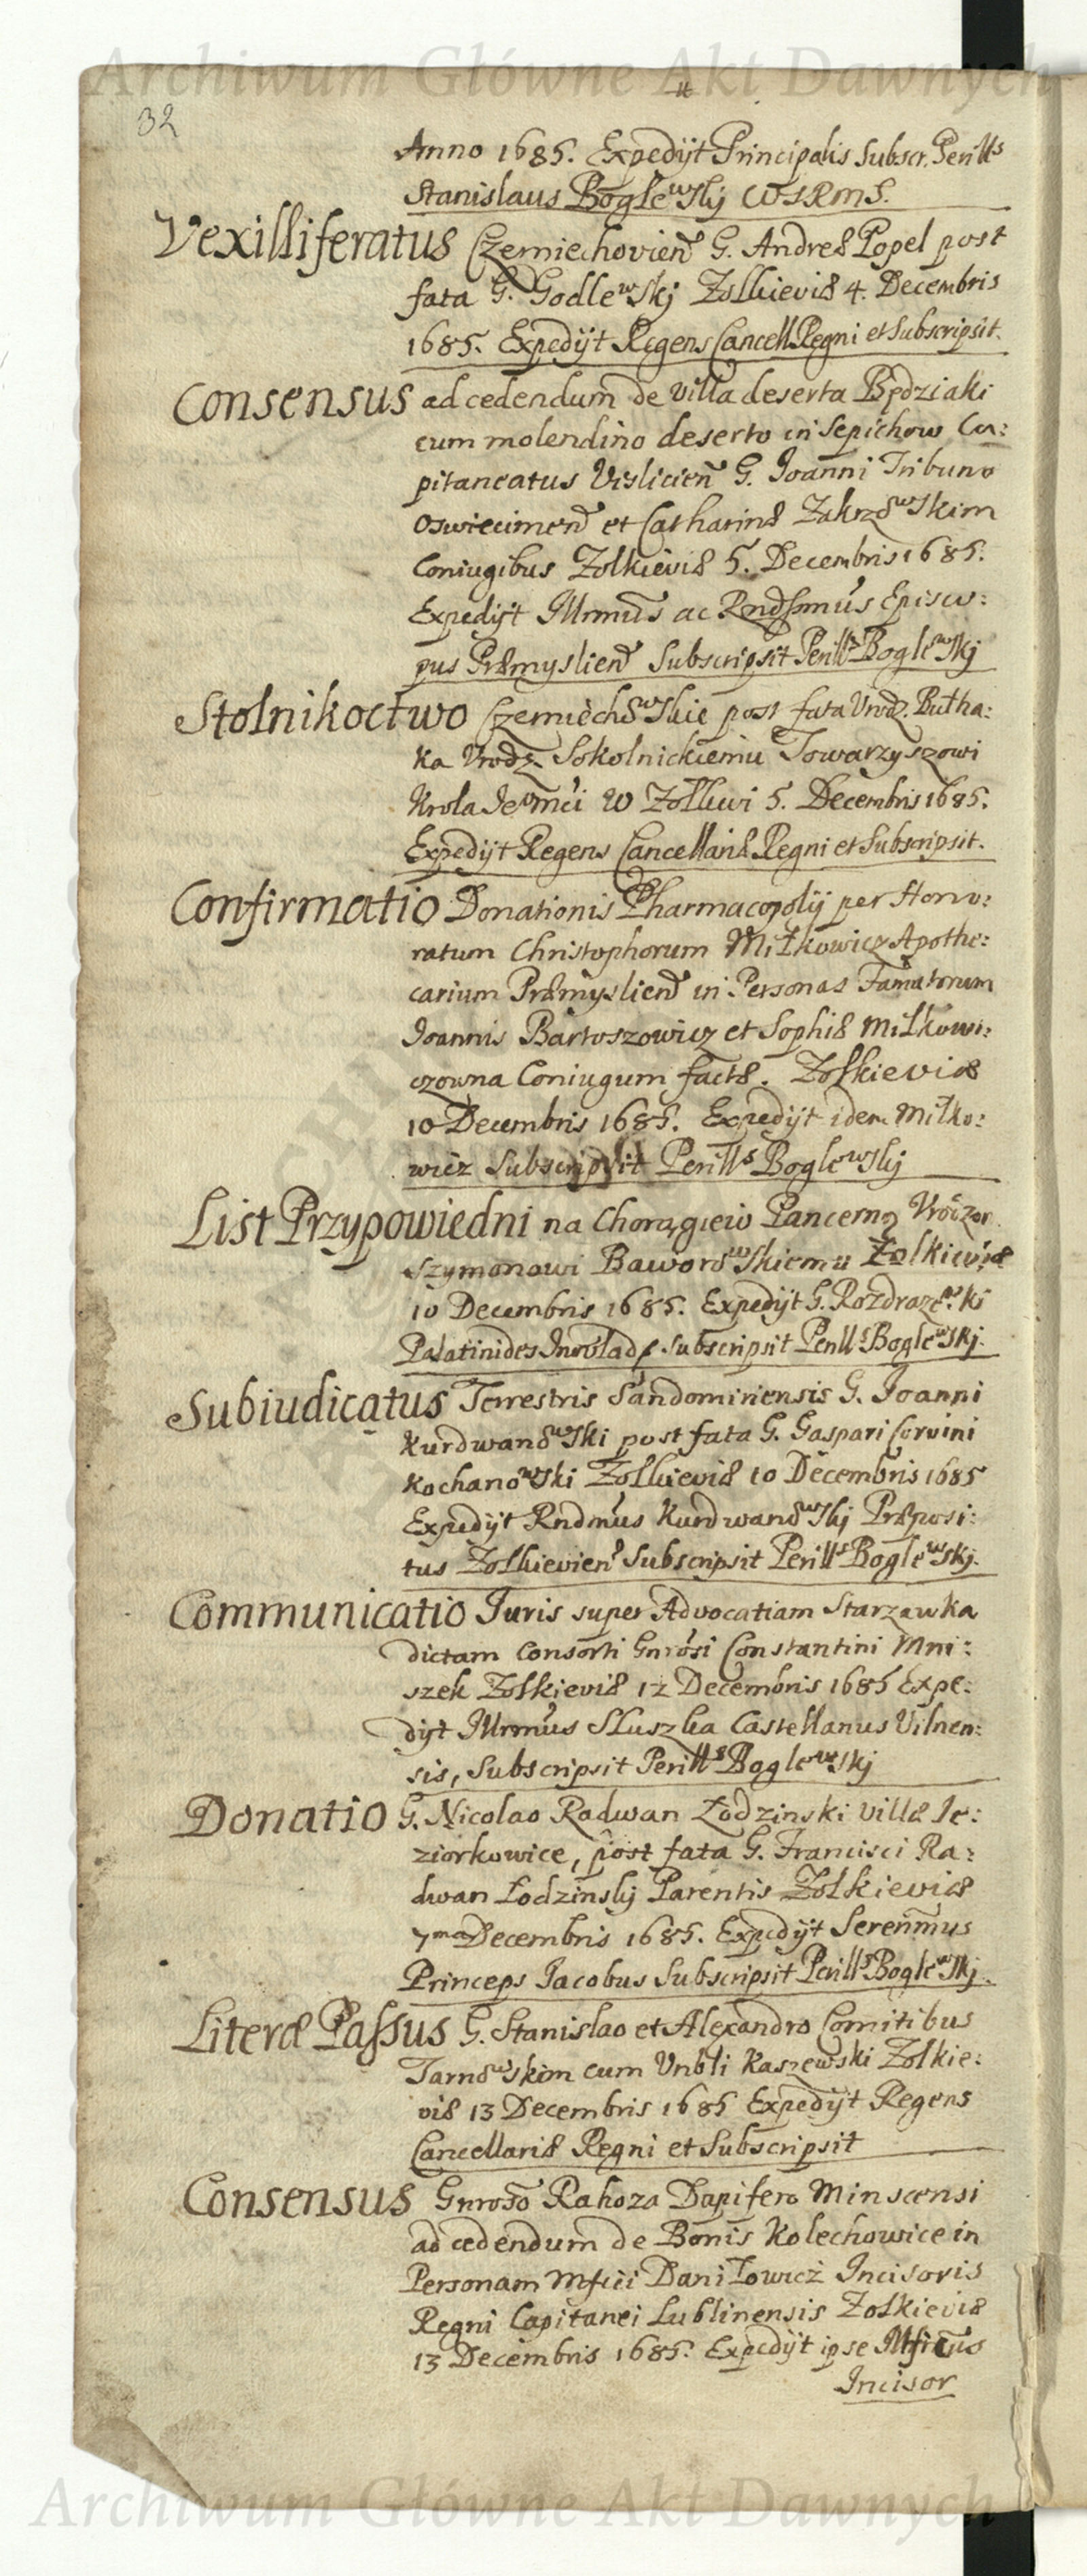 Archiwum Główne Akt Dawnych
32
Anno 1685. Expedijt Principalis Subscr. Perills
Stanislaus Boglewskj
Vexilliferatus Czerniechovien G. Andreæ Popel post
fata G. Godlewskj Zolkieviæ 4. Decembris
1685. Expedijt Regens Cancell Regni et Subscripsit.
Consensus ad cedendum de Villa deserta Będziaki
cum molendino deserto in Sępichow Ca:
pitaneatus Vislicien G. Joanni Tribuno
Oswiecimen et Catharinæ Zakrzowskim
Coniugibus Zolkieviæ 5. Decembris 1685.
Expedijt Illrmus ac Rndssmus Episco:
pus Præmyslien Subscripsit Perills Boglewskj
Stolnikoctwo Czerniechowskie post fata Vrodz. Putha:
ka Vrodz. Sokolnickiemu Towarzyszowi
Krola Jeomci W Zolkwi 5. Decembris 1685.
Expedijt Regens Cancellariæ Regni et Subscripsit.
Confirmatio Donationis Pharmacopolij per Hono:
ratum Christophorum Miłkowicz Apothe:
carium Præmyslien in Personas Famatorum
Joannis Bartoszowicz et Sophiæ Miłkowi:
czowna Coniugum factæ. Zolkieviæ
10 Decembris 1685. Expedijt idem Miłko:
wicz Subscripsit Perills Boglewskj
List Przypowiedni na Chorągiew Pancerną
Szymonowi Baworowskiemu Zolkieviæ
10 Decembris 1685. Expedijt G. Rozdrazewski
Palatinides Subscripsit Perills Boglewskj.
Subiudicatus Terrestris Sandomiriensis G. Joanni
Kurdwanowski post fata G. Gaspari Corvini
Kochanowski Zolkieviæ 10 Decembris 1685
Expedijt Rndmus Kurdwanowskj Præposi:
tus Zolkievien Subscripsit Perills Boglewskj.
Communicatio Iuris super Advocatiam Starzawka
dictam Consorti Gnrosi Constantini Mni:
szek Zolkieviæ 12 Decembris 1685 Expe:
dijt Illrmus Sluszka Castellanus Vilnen:
sis, Subscripsit Perills Boglewskj
Donatio G. Nicolao Radwan Łodzinski villæ Je:
ziorkowice, post fata G. Francisci Ra:
dwan Łodzinskj Parentis Zolkieviæ
7ma Decembris 1685. Expedijt Serenmus
Princeps Jacobus Subscripsit Perills Boglewskj.
Literæ Passus G. Stanislao et Alexandro Comitibus
Tarnowskim cum Vnbli Kaszewski Zolkie:
viæ 13 Decembris 1685 Expedijt Regens
Cancellariæ Regni et Subscripsit
Consensus Gnroso Rahoza Dapifero Minscensi
ad cedendum de Bonis Kolechowice in
Personam Mfici Daniłowicz Incisoris
Regni Capitanei Lublinensis Zolkieviæ
13 Decembris 1685. Expedijt ipse Mficus
Incisor
Archiwum Główne Akt Dawnych